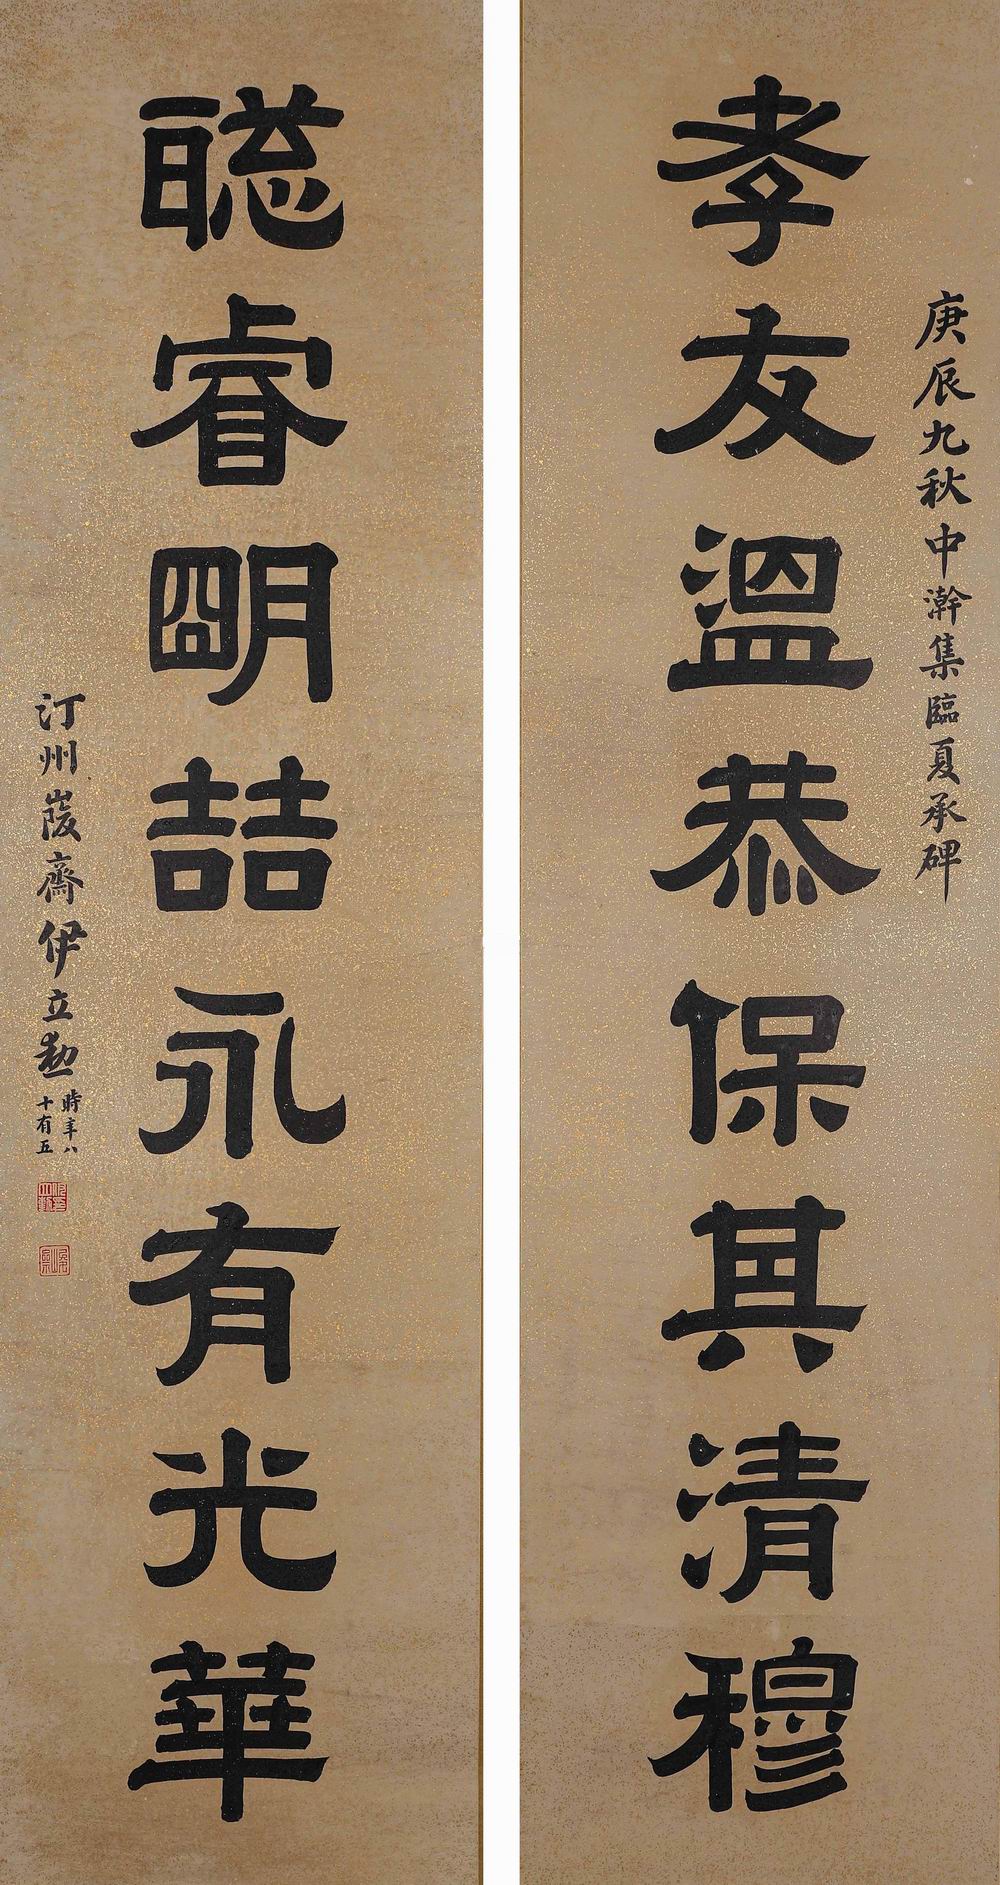 庚辰九秋中澣集臨夏承碑
孝友温恭保其清穆
聡睿明喆永有光華
汀州峻齋伊立勳
時年八
十有五